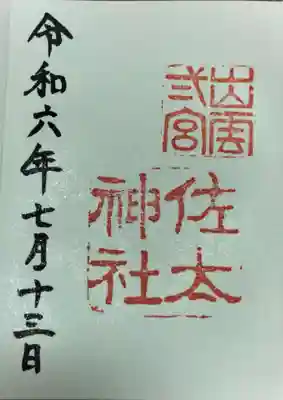 出雲
弐宮
佐太
神社
令和六年七月十三日